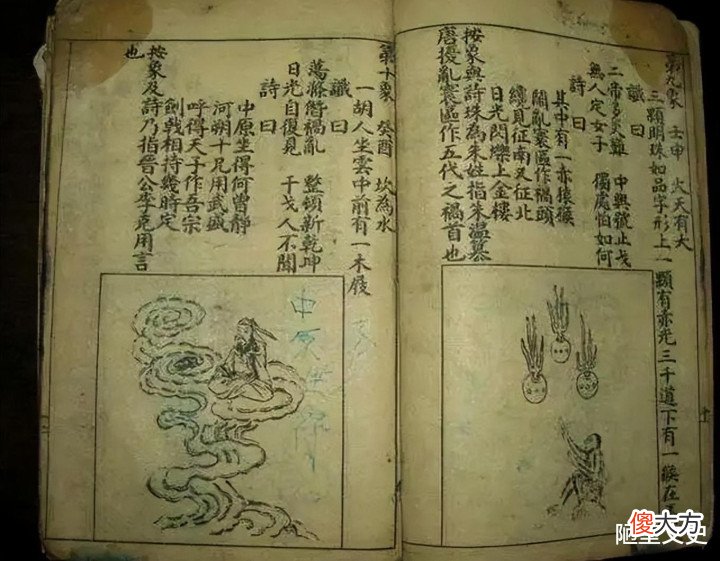 第九象 壬申 火天有大
三顆明珠如品字形上一顆有赤光三千道下有一猴在
讖曰
二帝多災難 中興號止戈
無人定女子 獨處怕如何
詩曰
其中有一赤猿猴
鬧亂寰區作禍頭
纔見征南又征北
日光閃爍上金樓
按象與詩珠為朱姓指朱溫篡
唐擾亂寰區作五代之禍首也
第十象 癸酉 坎為水
一胡人坐雲中前有一木屐
讖曰
蕩滌僭禍亂 整頓新乾坤
日光自復見 干戈人不聞
詩曰
中原生得何曾靜
河朔十兄用武盛
呼得天子作吾宗
劍戟相持幾時定
按象及詩乃指晉公李克用言
也
中原
傻大方